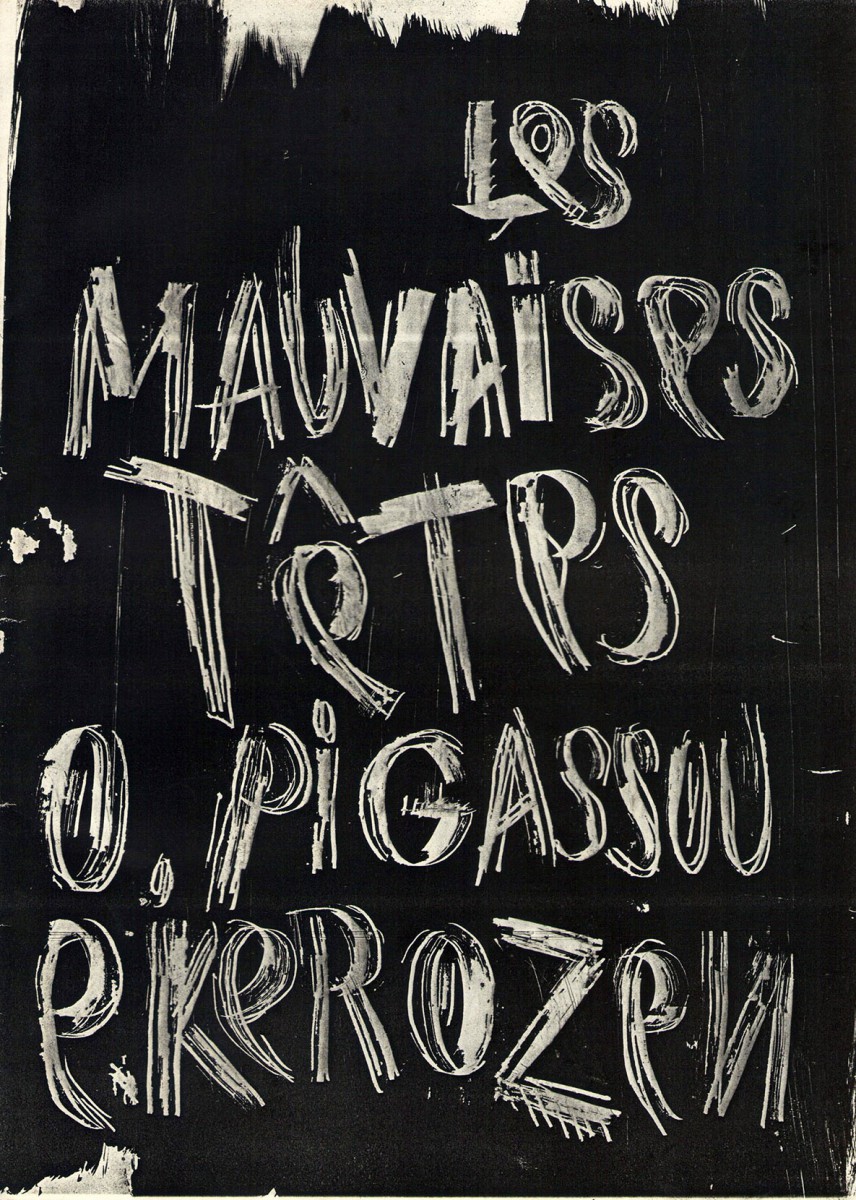 Les
MAUVAISES
TÊTES
O. PIGASSOU
E. KEROZEN